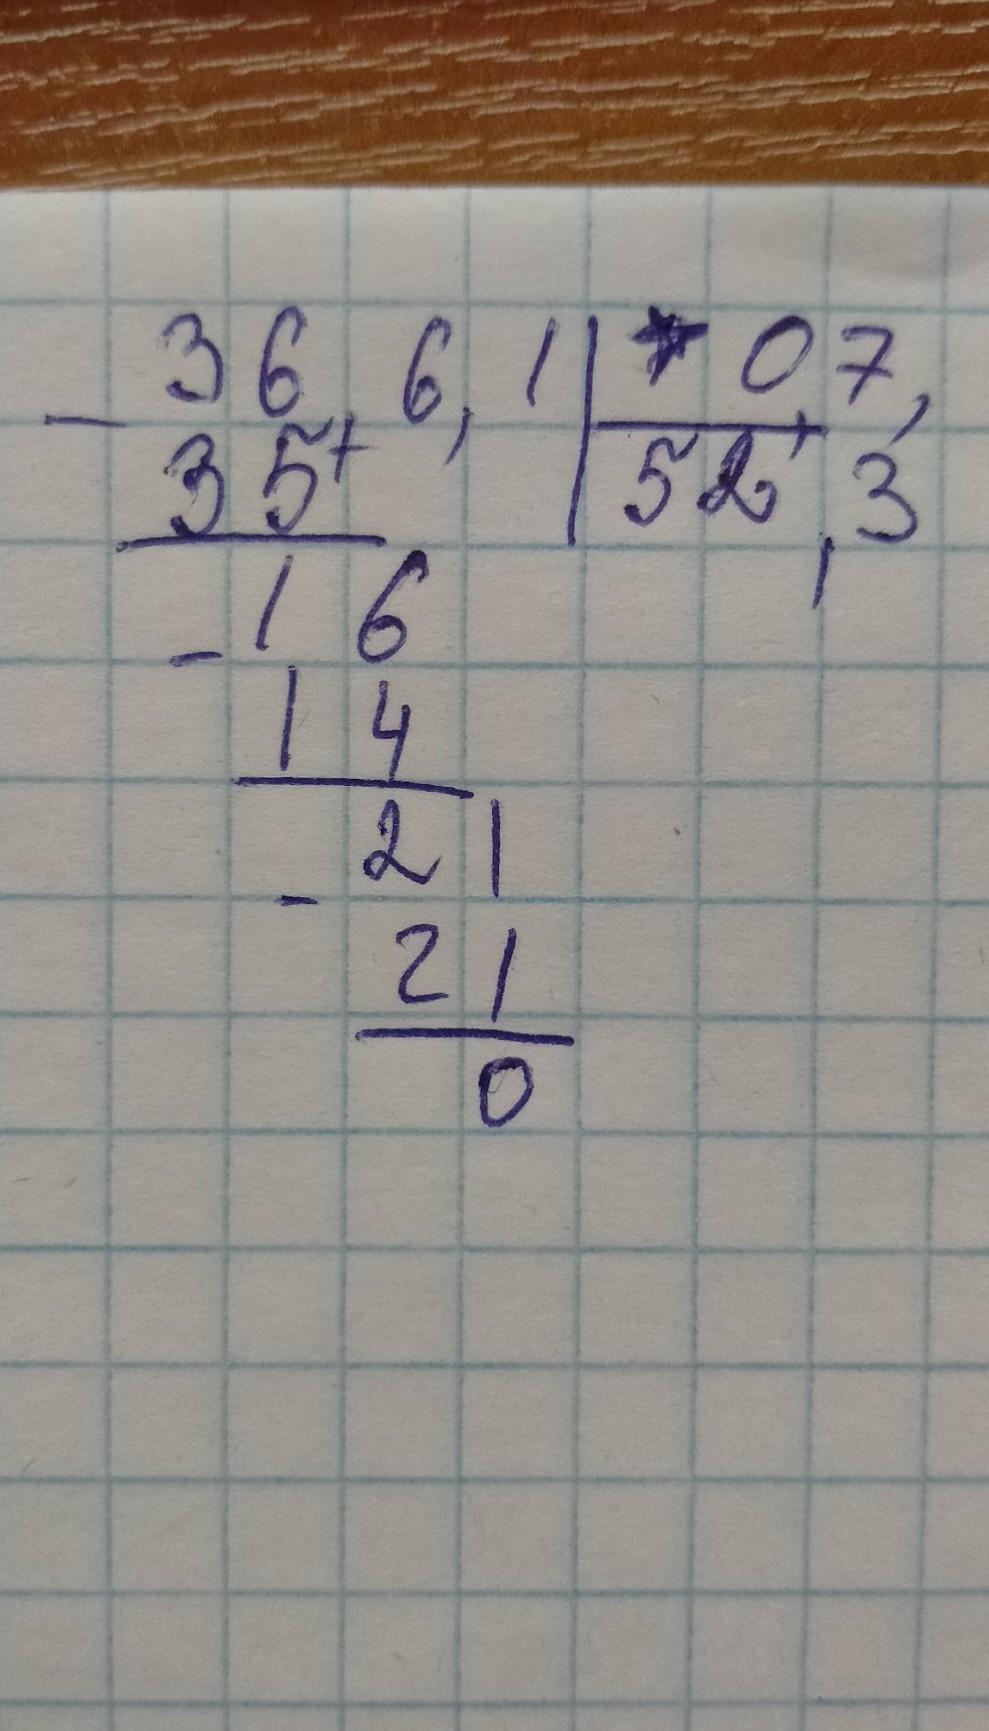 36,6,1 0,7,
- 35 52,3
16
- 14
21
- 21
0